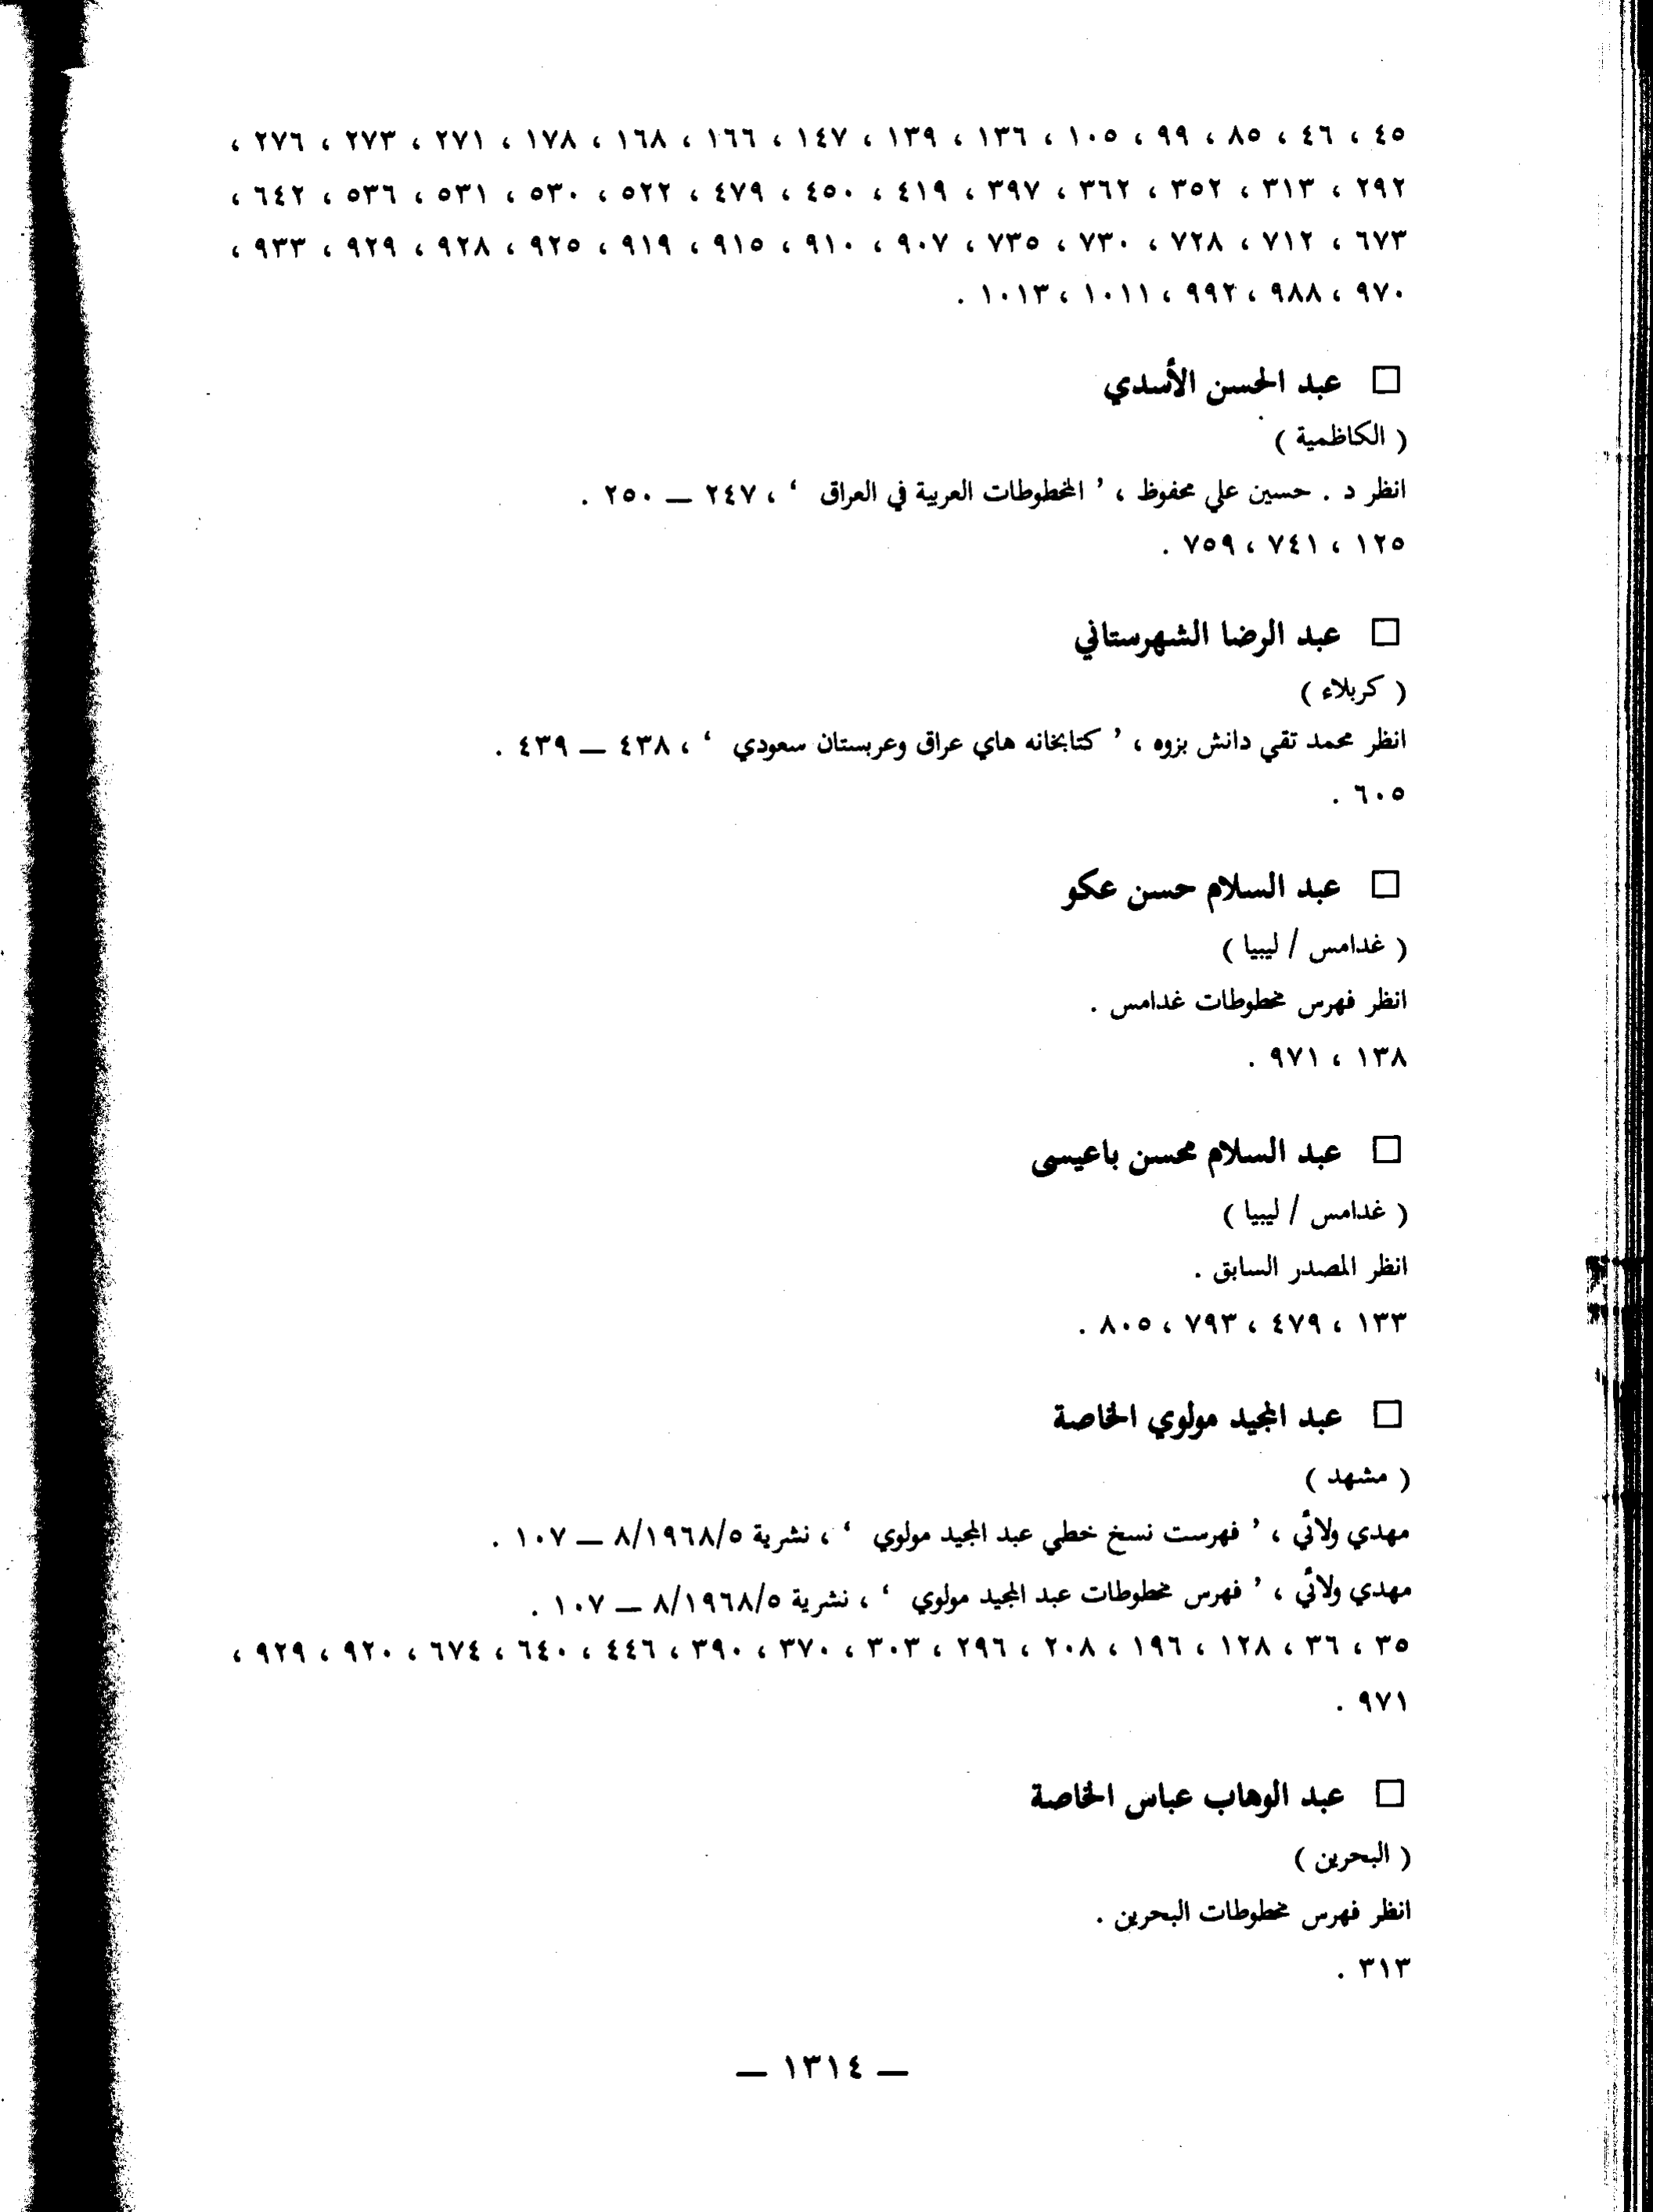 ٤٥ ، ٤٦ ، ٨٥ ، ٩٩ ، ١٠٥ ، ١٣٦ ، ١٣٩ ، ١٤٧ ، ١٦٦ ، ١٦٨ ، ١٧٨ ، ٢٧١ ، ٢٧٣ ، ٢٧٦ ،
٢٩٢ ، ٣١٣ ، ٣٥٢ ، ٣٦٢ ، ٣٩٧ ، ٤١٩ ، ٤٥٠ ، ٤٧٩ ، ٥٢٢ ، ٥٣٠ ، ٥٣١ ، ٥٣٦ ، ٦٤٢ ،
٦٧٣ ، ٧١٢ ، ٧٢٨ ، ٧٣٠ ، ٧٣٥ ، ٩٠٧ ، ٩١٠ ، ٩١٥ ، ٩١٩ ، ٩٢٥ ، ٩٢٨ ، ٩٢٩ ، ٩٣٣ ،
٩٧٠ ، ٩٨٨ ، ٩٩٢ ، ١٠١١ ، ١٠١٣ .
□ عبد الحسن الأسدي
( الكاظمية )
انظر د . حسين علي محفوظ ، ’ المخطوطات العربية في العراق ‘ ، ٢٤٧ — ٢٥٠ .
١٢٥ ، ٧٤١ ، ٧٥٩ .
□ عبد الرضا الشهرستاني
( كربلاء )
انظر محمد تقي دانش بزوه ، ’ كتابخانه هاي عراق وعربستان سعودي ‘ ، ٤٣٨ — ٤٣٩ .
٦٠٥ .
□ عبد السلام حسن عكو
( غدامس / ليبيا )
انظر فهرس مخطوطات غدامس .
١٣٨ ، ٩٧١ .
□ عبد السلام محسن باعيسى
( غدامس / ليبيا )
انظر المصدر السابق .
١٣٣ ، ٤٧٩ ، ٧٩٣ ، ٨٠٥ .
□ عبد المجيد مولوي الخاصة
( مشهد )
مهدي ولائي ، ’ فهرست نسخ خطي عبد المجيد مولوي ‘ ، نشرية ٨/١٩٦٨/٥ — ١٠٧ .
مهدي ولائي ، ’ فهرس مخطوطات عبد المجيد مولوي ‘ ، نشرية ٨/١٩٦٨/٥ — ١٠٧ .
٣٥ ، ٣٦ ، ١٢٨ ، ١٩٦ ، ٢٠٨ ، ٢٩٦ ، ٣٠٣ ، ٣٧٠ ، ٣٩٠ ، ٤٤٦ ، ٦٤٠ ، ٦٧٤ ، ٩٢٠ ، ٩٢٩ ،
٩٧١ .
□ عبد الوهاب عباس الخاصة
( البحرين )
انظر فهرس مخطوطات البحرين .
٣١٣ .
— ١٣١٤ —